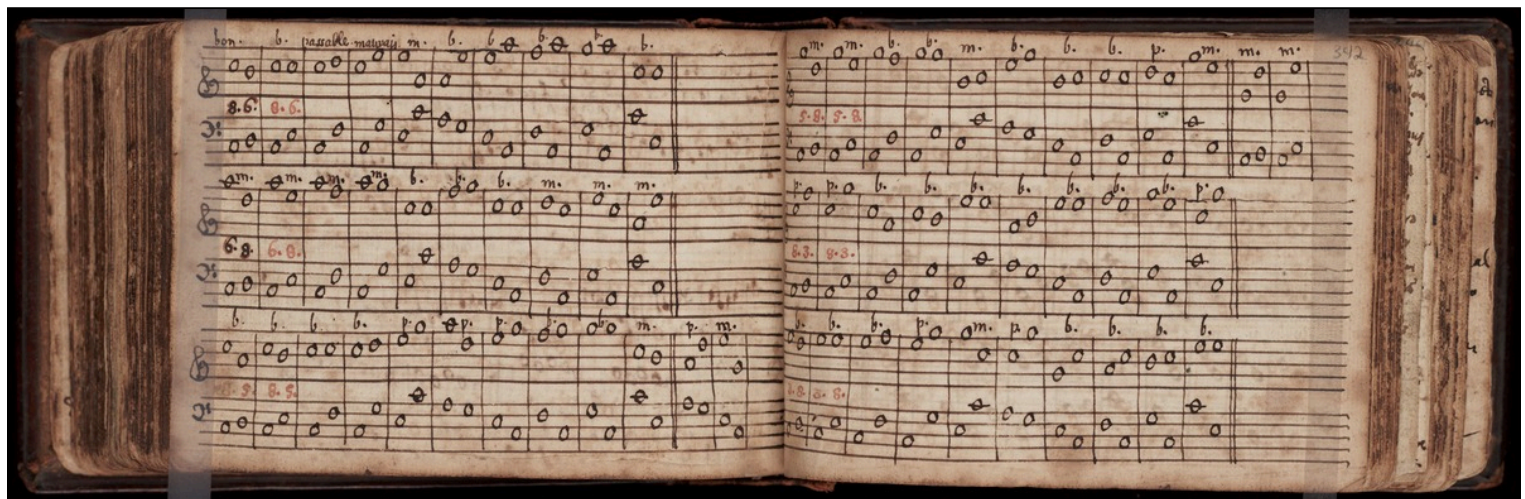 bon. b. passable mauvais m. b. b b. b. b.
8.6. 8.6.
m. m. m. m. b. b. b. m. m. m.
6.8. 6.8.
b. b. b. b. p. p. p. b. b. m. p. m.
8.5. 8.5.
m. m. b. b. m. b. b. b. p. m. m. m. 342
5.8. 5.8.
p. p. b. b. b. b. b. b. b. p.
8.3. 8.3.
b. b. b. p. m. p. b. b. b. b.
3.8. 3.8.